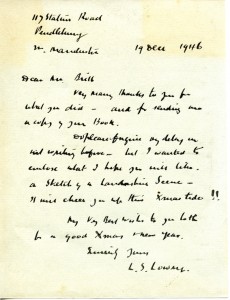 117 Station Road
Pendlebury
nr. Manchester
19 Dec 1946
Dear Mr. Britt
Very many thanks to you for
what you did – and for sending me
a copy of your Book.
Do please forgive my delay in
not writing before – but I wanted to
enclose what I hope you will like.
a Sketch of a Lancashire Scene –
It will cheer you up this Xmas tide !!
My Very Best Wishes to you both
for a good Xmas & new year.
Sincerely Yours
L. S. Lowry.